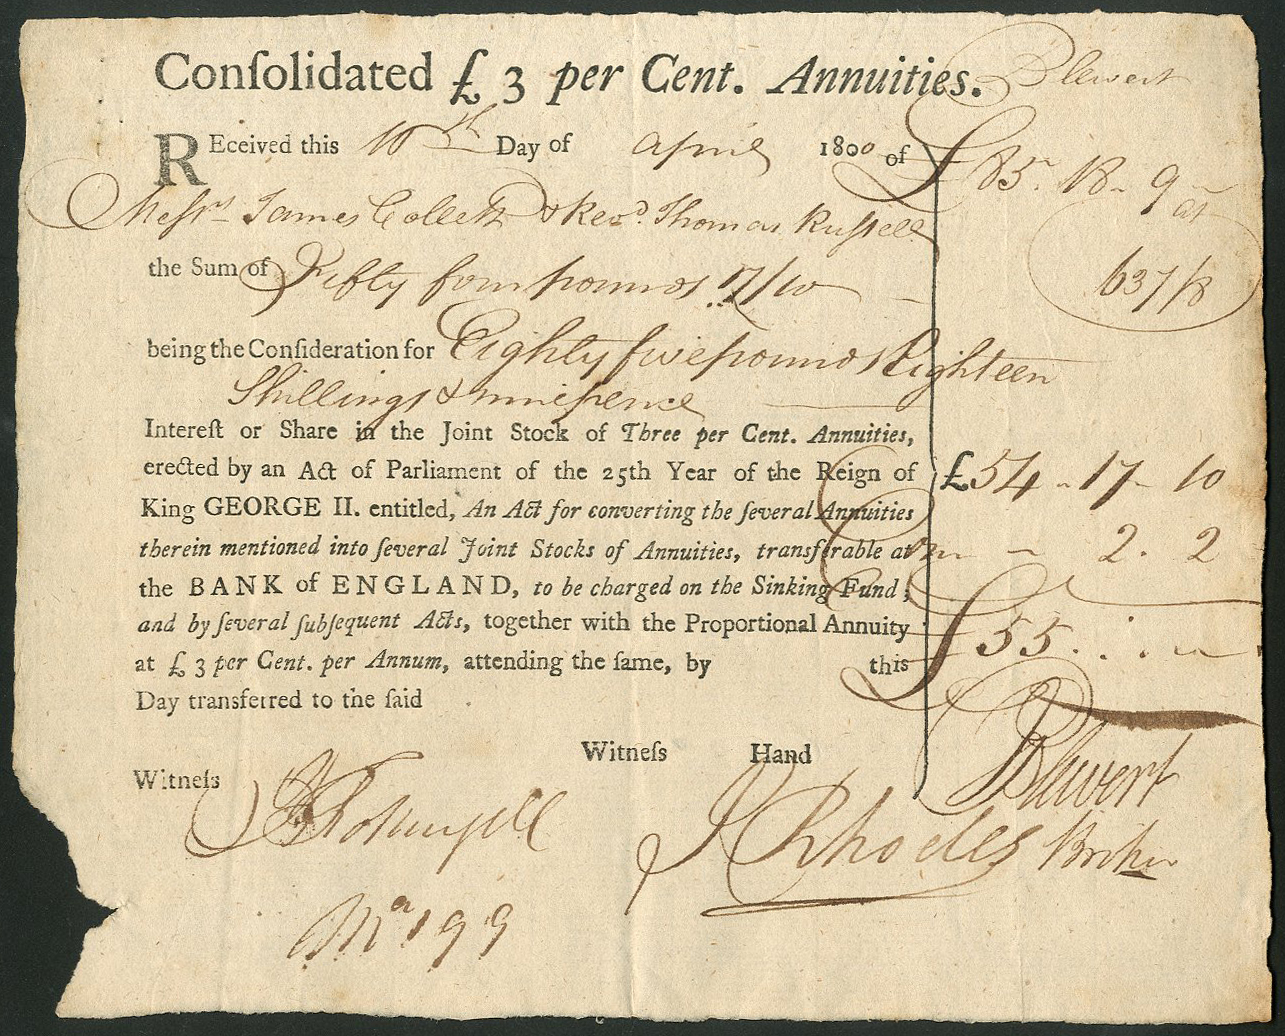 Conſolidated £ 3 per Cent. Annuities. Blewert
REceived this 10th Day of April 1800 of £85. 18. 9
Meſsrs James Collett & Revd. Thomas Ruſsell at
the Sum of Fifty four pounds 17/10 63 7/8
being the Conſideration for Eighty five pounds Eighteen
Shillings & ninepence
Intereſt or Share in the Joint Stock of Three per Cent. Annuities,
erected by an Act of Parliament of the 25th Year of the Reign of £54 - 17 - 10
King GEORGE II. entitled, An Act for converting the ſeveral Annuities
therein mentioned into ſeveral Joint Stocks of Annuities, transferable at 2. 2
the BANK of ENGLAND, to be charged on the Sinking Fund;
and by ſeveral ſubſequent Acts, together with the Proportional Annuity £55.
at £ 3 per Cent. per Annum, attending the ſame, by this
Day transferred to the ſaid
Witneſs Hand
Blewert
Witneſs
J Rhodes Broker
199